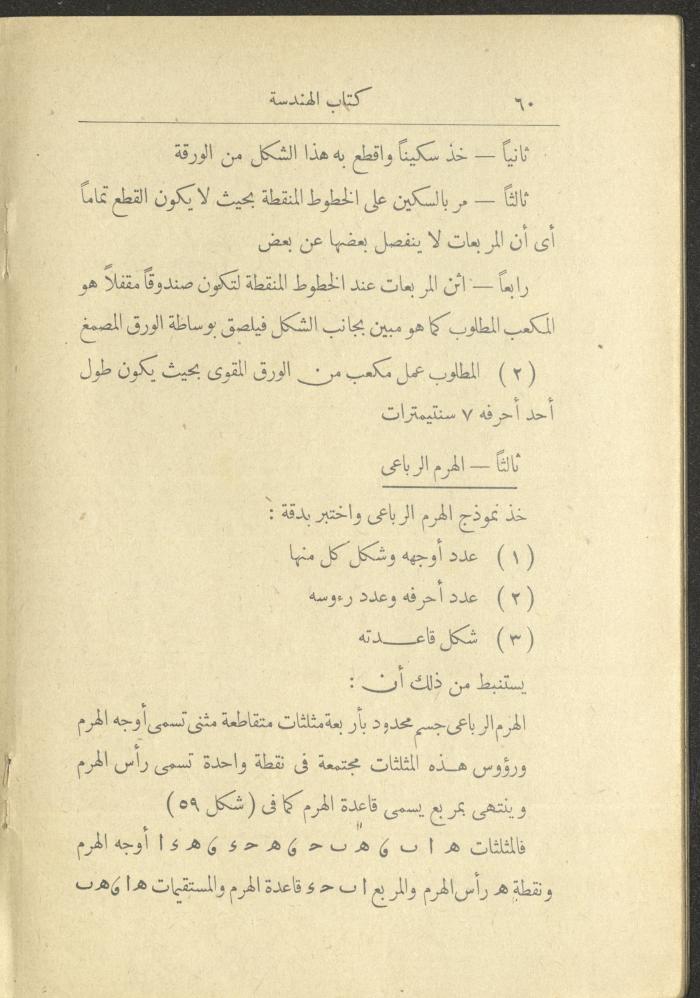 ٦٠ كتاب الهندسة
ثانياً — خذ سكيناً واقطع به هذا الشكل من الورقة
ثالثاً — مر بالسكين على الخطوط المنقطة بحيث لا يكون القطع تماماً
أى أن المربعات لا ينفصل بعضها عن بعض
رابعاً — اثن المربعات عند الخطوط المنقطة لتكون صندوقاً مقفلاً هو
المكعب المطلوب كما هو مبين بجانب الشكل فيلصق بوساطة الورق المصمغ
(٢) المطلوب عمل مكعب من الورق المقوى بحيث يكون طول
أحد أحرفه ٧ سنتيمترات
ثالثاً — الهرم الرباعى
خذ نموذج الهرم الرباعى واختبر بدقة :
(١) عدد أوجهه وشكل كل منها
(٢) عدد أحرفه وعدد رءوسه
(٣) شكل قاعدته
يستنبط من ذلك أن :
الهرم الرباعى جسم محدود بأربعة مثلثات متقاطعة مثنى تسمى أوجه الهرم
ورؤوس هذه المثلثات مجتمعة فى نقطة واحدة تسمى رأس الهرم
وينتهى بمربع يسمى قاعدة الهرم كما فى (شكل ٥٩)
فالمثلثات ھ ا ب و ھ ب ح و ھ ح ء و ھ ء ا أوجه الهرم
ونقطة ھ رأس الهرم والمربع ا ب ح ء قاعدة الهرم والمستقيمات ھ ا و ھ ب